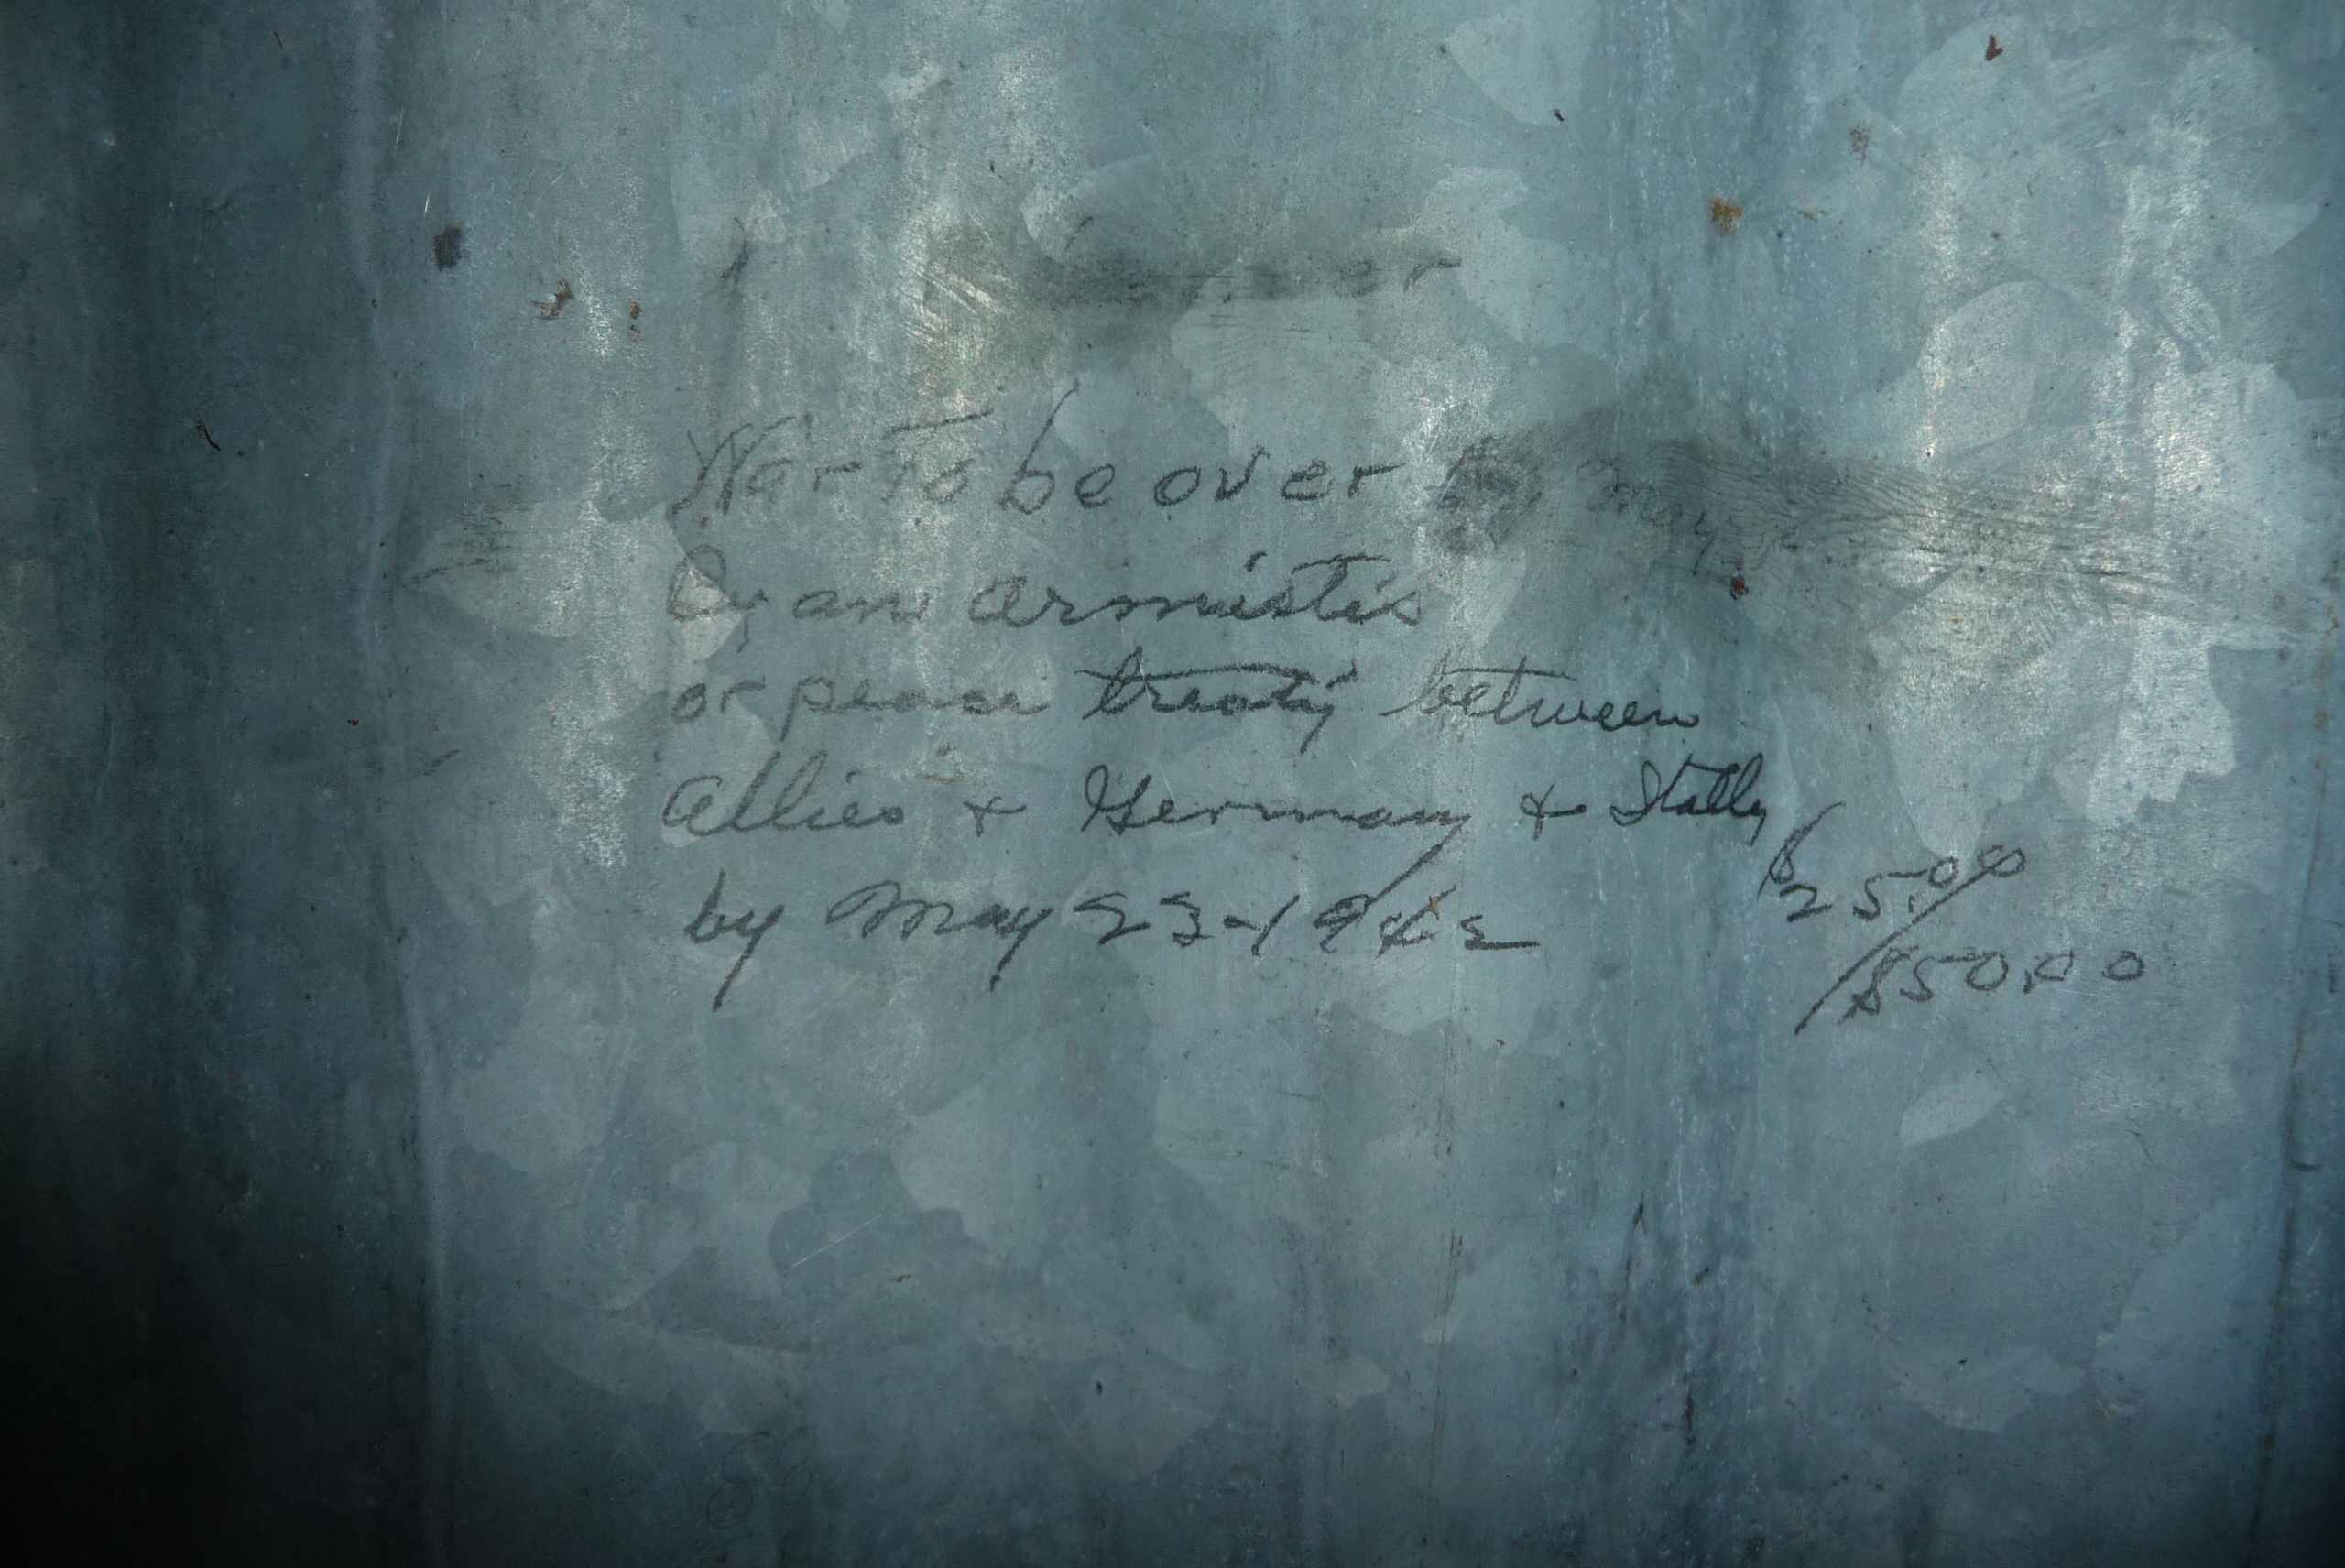 War To be over By May
by an armistis
or peace treaty between
Allies + Germany + Itally
by May 23-1942
$25.00
$50.00